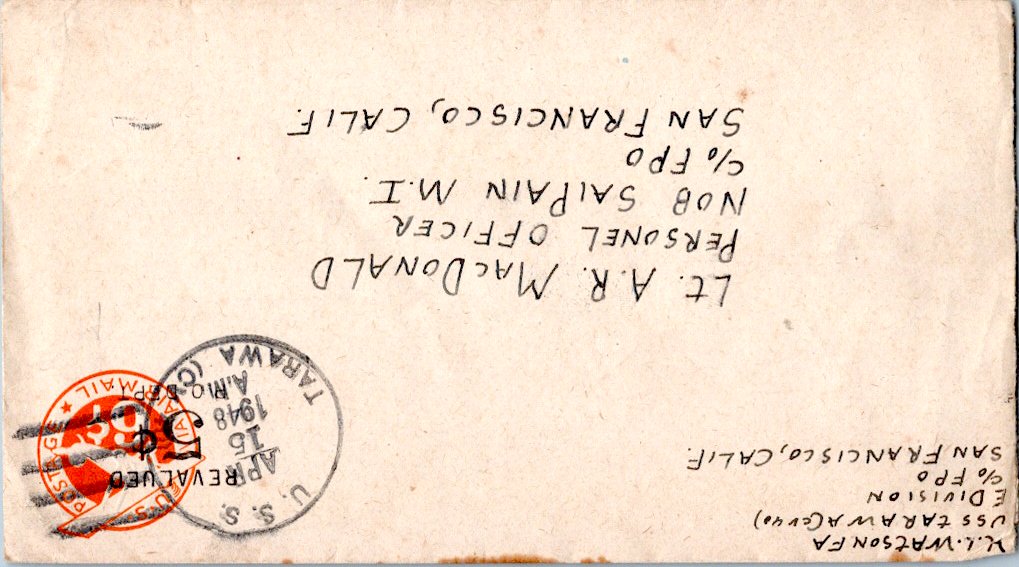 H.L. WATSON FA
USS TARAWA (CV40)
E DIVISION
C/O FPO
SAN FRANCISCO, CALIF.
U.S. POSTAGE
VIA AIR MAIL
6¢
REVALUED
5¢
P.O. DEPT.
U. S. S. TARAWA (CV
APR
15
1948
A.M.
LT. A.R. MACDONALD
PERSONEL OFFICER
NOB SAIPAIN M.I.
C/O FPO
SAN FRANCISCO, CALIF.